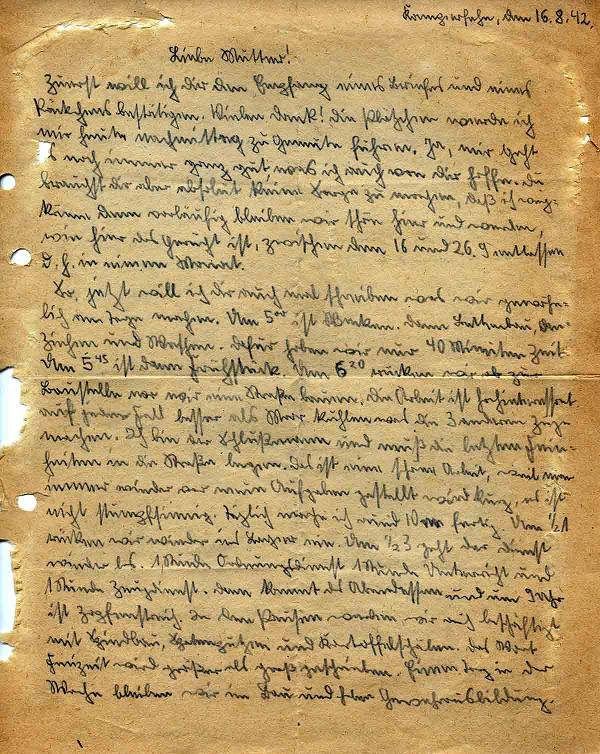 Kampsrfehn, den 16.8.42.
Liebe Mutter!
Zuerst will ich dir den Empfang eines Briefes und eines
Päckchens bestätigen. Vielen Dank! die Plätzchen werde ich
mir heute nachmittag zu Gemüte führen. Ja, mir geht
es noch immer ganz gut was ich auch von dir hoffe. Du
brauchst dir aber absolut keine Sorge zu machen, daß ich weg-
komme denn vorläufig bleiben wir schon hier und werden,
wie hier das Gerücht ist, zwischen dem 16 und 26.9 entlassen
d.h. in einem Monat.
So, jetzt will ich dir auch mal schreiben was wir gewöhn-
lich am Tage machen. Um 5⁰⁰ ist Wecken. dann Bettenbau, An-
ziehen und Waschen. dafür haben wir nur 40 Minuten Zeit
Um 5⁴⁵ ist dann Frühstück. Um 6²⁰ rücken wir ab zur
Baustelle wo wir eine Straße bauen. die Arbeit ist hochinteressant
auf jeden Fall besser als Moor kuhlen was die 3 anderen Züge
machen. Ich bin der Schlußmann und muß die letzten Fein-
heiten in die Straße legen. das ist eine schöne Arbeit, weil man
immer wieder vor neue Aufgaben gestellt wird kurz, es ist
nicht stumpfsinnig. Täglich mache ich rund 10 m fertig. Um ½1
rücken wir wieder ins Lager ein. Um ½3 geht der Dienst
wieder los. 1 Stunde Ordnungsdienst 1 Stunde Unterricht und
1 Stunde Zeugdienst. dann kommt das Abendessen und um 9 Uhr
ist Zapfenstreich. In den Pausen werden wir noch beschäftigt
mit Spindbau, Spatenputzen und Kartoffelschälen. das Wort
Freizeit wird größer als groß geschrieben. Einen Tag in der
Woche bleiben wir im Bau und haben Gewehrausbildung.